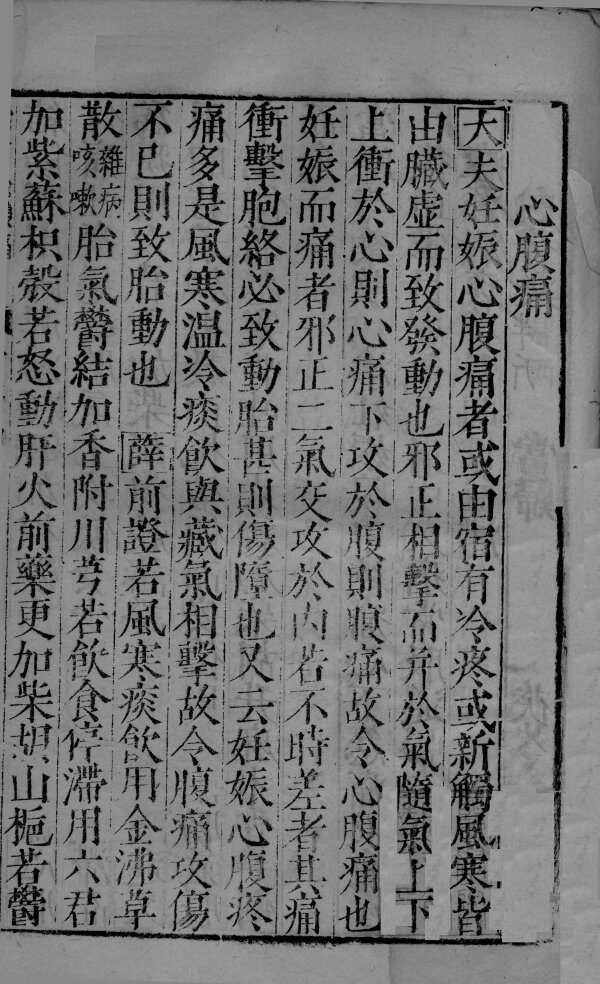 心腹痛
大夫妊娠心腹痛者或由宿有冷疼或新觸風寒皆
由臟虛而致發動也邪正相擊而并於氣隨氣上下
上衝於心則心痛下攻於腹則腹痛故令心腹痛也
妊娠而痛者邪正二氣交攻於內若不時差者其痛
衝擊胞絡必致動胎甚則傷墮也又云妊娠心腹疼
痛多是風寒温冷痰飲與藏氣相擊故令腹痛攻傷
不已則致胎動也薛前證若風寒痰飲用金沸草
散雜病咳嗽胎氣鬱結加香附川芎若飲食停滯用六君
加紫蘇枳殼若怒動肝火前藥更加柴胡山梔若鬱